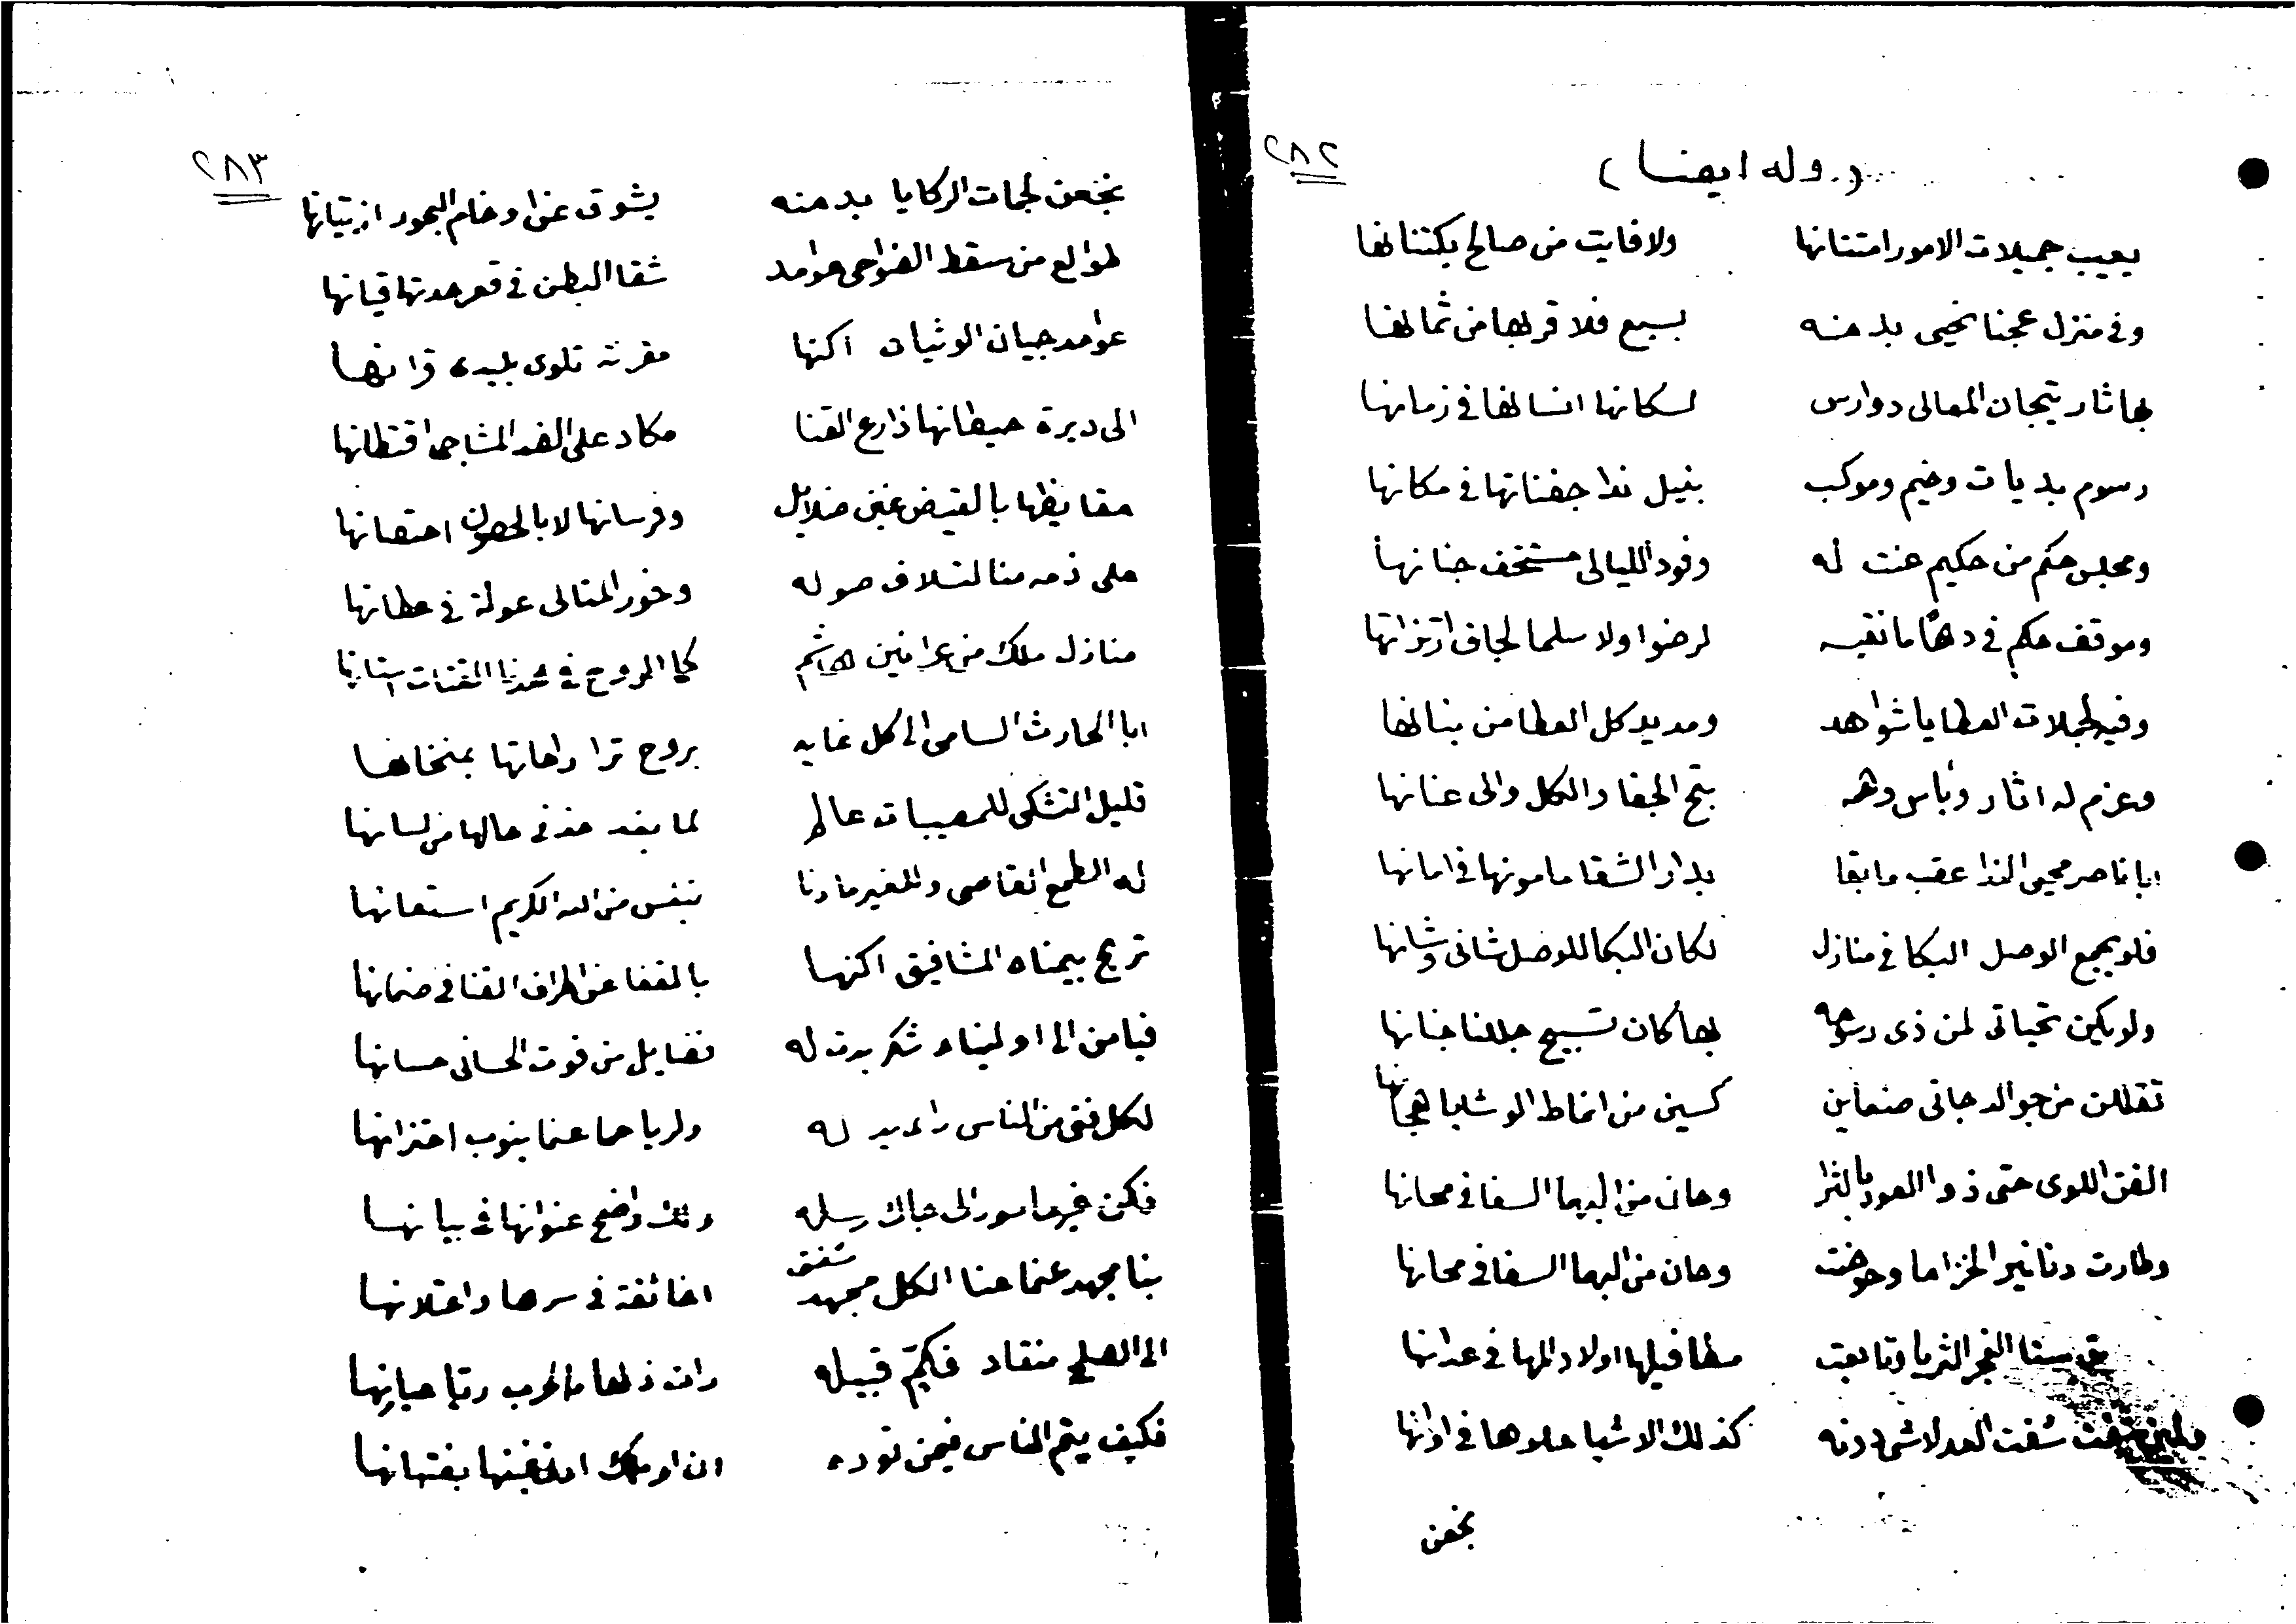 ٢٨٢
(وله ايضا)
يعيب جميلات الامور امتنانها ولا فايت من صالح يكتنا لها
وفي منزل عجنا نحيى بدمنه بسبع فلا قر لها من ثما لها
بها ثار تيجان المعالى دوارس لسكانها انسا لها في زمانها
رسوم بديات وخيم وموكب بنيل ندا جفناتها في مكانها
ومجلس حكم من حكيم عنت له وفود الليالى مستخف جنانها
وموقف حكم في دها ما نقيه لرضوا ولا سلما لجاف ارتزاتها
وفيه لجملات العطايا شواهد ومديد كل العطا من بنانها
وعزم له اثار وباس وهمه بتح الجفا والكل والى عنانها
ابا ناصر محيى الندا عقب مابقا بدار الشقا مامونها في امانها
فلو يجمع الوصل البكا في منازل لكان البكا للوصل شانى وشانها
ولو يكين تحياتى لمن ذى رسومه بها كان تسبيح جللنا جنانها
تقللن من جو الدجانى صنعاين كسين من انماط الوشا يا هجانها
الفن اللوى حتى ذوا العود بالثرا وحان من البهما السفا في محانها
وطارت دنانير الخزاما وحوضت وحان من البهما السفا في محانها
سنا الفجر الثريا وتابعت مطافيلها اولاد المها في عدانها
شفت العد لا شى دونه كذلك الاشيا حلوها في اوانها
نجعن
٢٨٣
نجعن لجمات الركايا بدمنه يشوق عن اوخام البحور ازتيانها
طوالع من سقط الضواحى عوامد شقا البطن في قعر مدتها قيانها
عوامد جيان الوثيات اكنها مقرنة تلوى بليده قرانها
الى ديرة حيطانها ذارع القنا مكاد على الضد المشاجى اقتطانها
مقايظها بالقيض عين ضلايل وفرسانها لا بالحصون احتصانها
على ذمه منا لتلاف صوله وخور المتالى عولة في عطانها
منازل ملك من عرانين هاشم
ابا الحارث السامى الى كل غايه بروح ترا راحاتها بمنخانها
قليل التشكى للمصيبات عالم لما بغد حذفى حالها من لسانها
له الطمع القاصى وللغير مادنا بنفس من الله الكريم استعانها
تريح بيمناه المشافيق اكنها بالقفا عن اطراف القنا في ضمانها
فيا من الى اولنياه شكر بدت له فضايل من فوت الحسانى حسانها
لكل فتى من الناس راى يدله ولرياحما عنما ينوب اختزانها
فكن غير مامور الى جاك رسله وتلك واضح عنوانها في بيانها
بنا مجهد عنما عنا الكل مجهد شفق اخا ثقة في سرها واعتلانها
الى الصلح منقاد فكيم قبيله رات ذلها بالحرب
فكيف يتم الناس فيمن توده